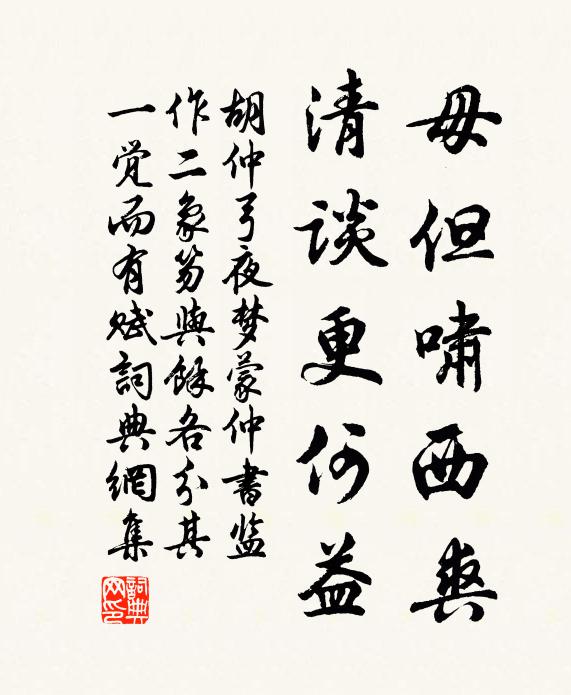 毋但啸西爽
清谈更何益
胡仲弓夜梦蒙仲书监
作二象笏与馀各分其
一觉而有赋词典網集
詞典網印